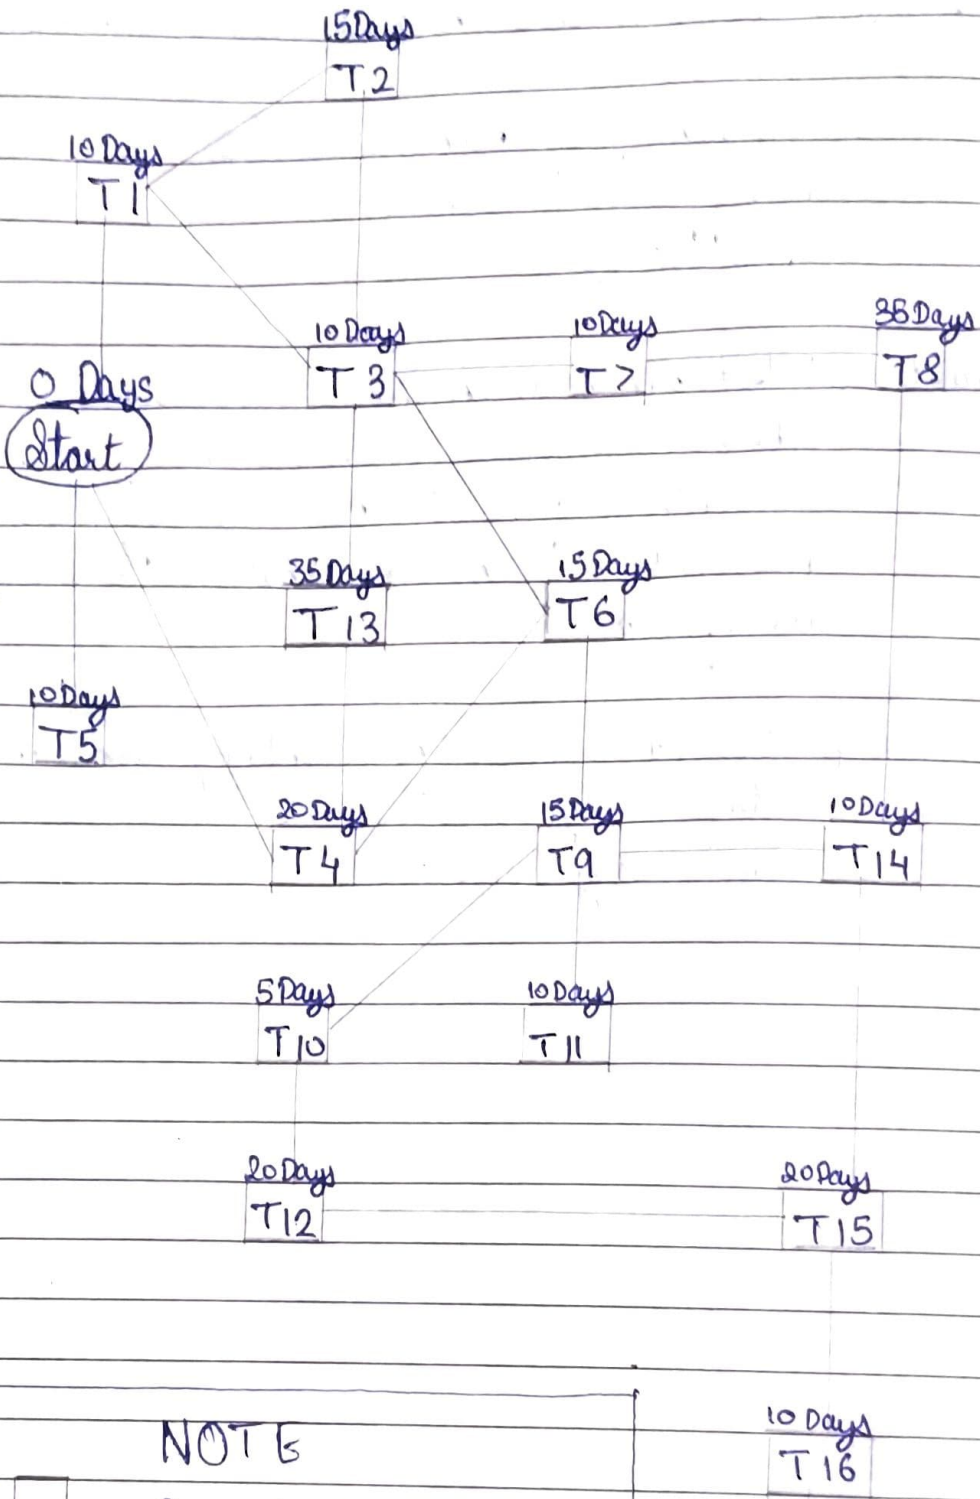 15 Days
T2
10 Days
T1
10 Days
T3
10 Days
T7
35 Days
T8
0 Days
Start
35 Days
T13
15 Days
T6
10 Days
T5
20 Days
T4
15 Days
T9
10 Days
T14
5 Days
T10
10 Days
T11
20 Days
T12
20 Days
T15
NOTE
10 Days
T16